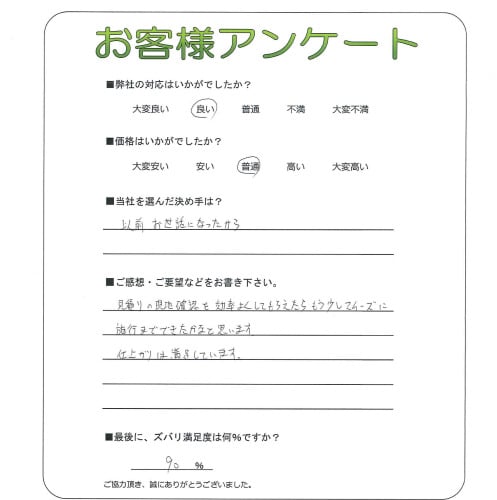 お客様アンケート
■弊社の対応はいかがでしたか？
大変良い 良い 普通 不満 大変不満
■価格はいかがでしたか？
大変安い 安い 普通 高い 大変高い
■当社を選んだ決め手は？
以前お世話になったから
■ご感想・ご要望などをお書き下さい。
見積りの現地確認を効率よくしてもらえたらもう少しスムーズに
施行までできたかなと思います。
仕上がりは満足しています。
■最後に、ズバリ満足度は何％ですか？
90 ％
ご協力頂き、誠にありがとうございました。